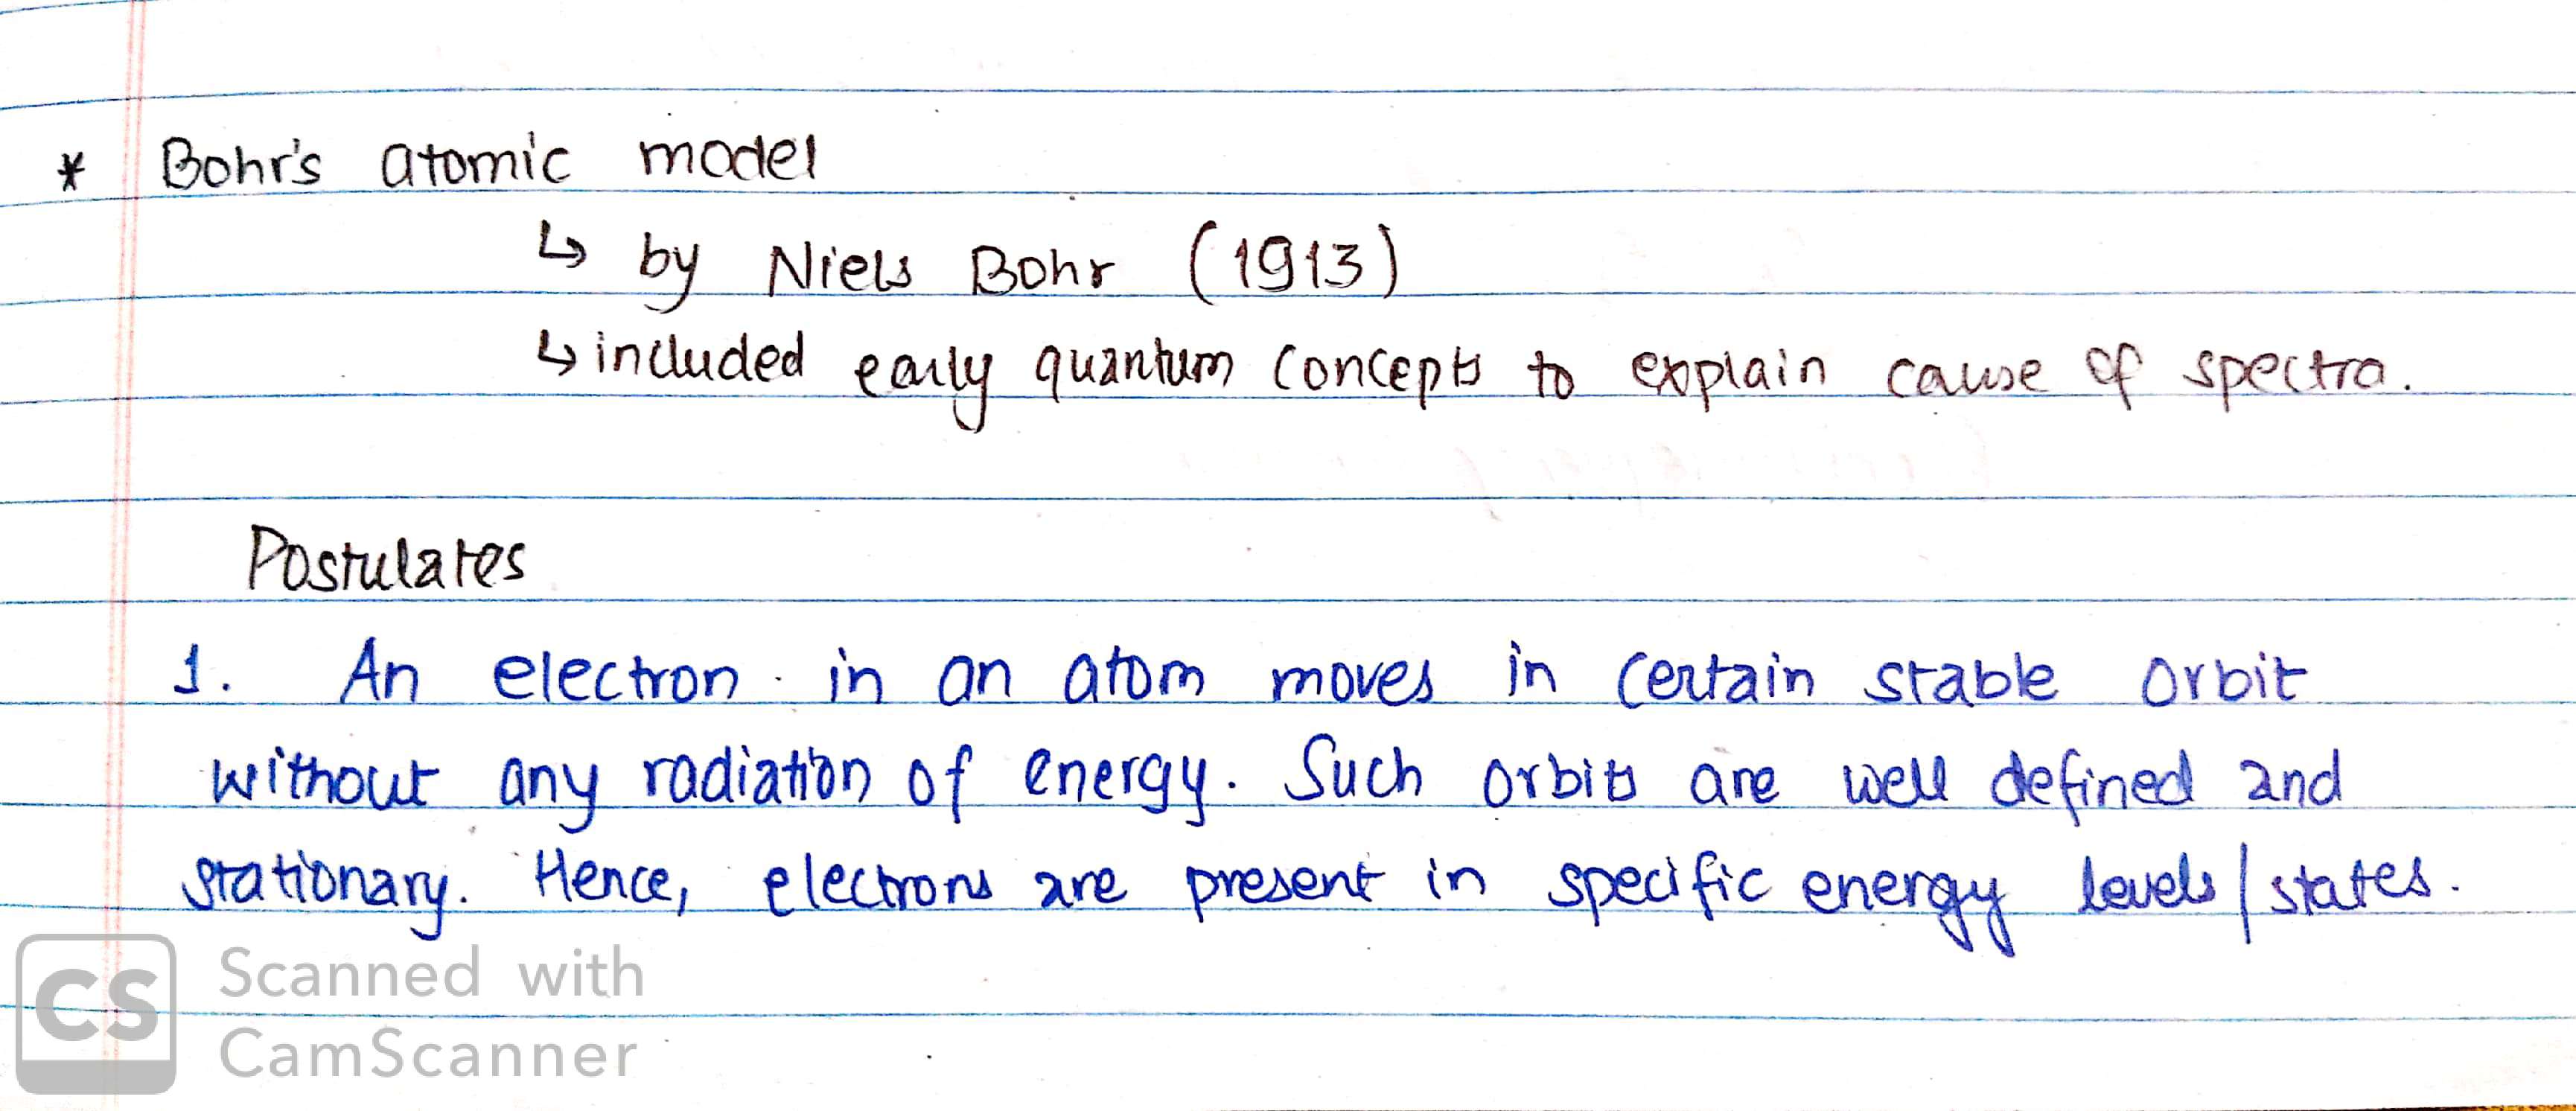 * Bohr's atomic model
↳ by Niels Bohr (1913)
↳ included early quantum concepts to explain cause of spectra.
Postulates
1. An electron in an atom moves in certain stable orbit
without any radiation of energy. Such orbits are well defined and
stationary. Hence, electrons are present in specific energy levels/states.
CS Scanned with
CamScanner